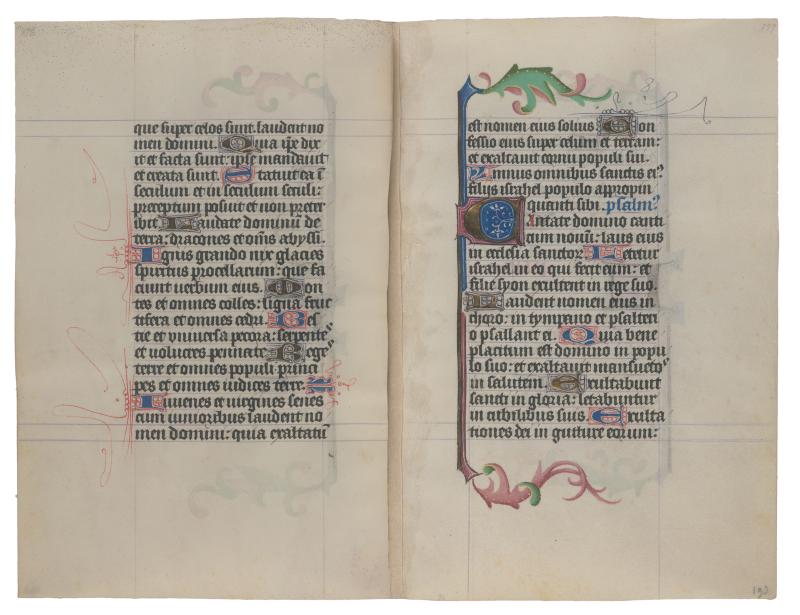 que super celos sunt. laudent no
men domini. Quia ip̄e dix
it et facta sunt. ipse mandauit
et creata sunt. Statuit ea ī
seculum et in seculum seculi:
preceptum posuit et non preter
ibit. Laudate dominū de
terra: dracones et om̄s abyssi.
Ignis grando nix glacies
spiritus procellarum: que fa
ciunt uerbum eius. Mon
tes et omnes colles: ligna fruc
tifera et omnes cedri. Bes
tie et vniuersa pecora: serpente
et volucres pennate. Rege
terre et omnes populi princi
pes et omnes iudices terre.
Iuuenes et uirgines senes
cum iunioribus laudent no
men domini: quia exaltatū
est nomen eius solius Con
fessio eius super celum et terram:
et exaltauit cornu populi sui.
Ymnus omnibus sanctis ei⁹
filiis israhel populo appropin
quanti sibi. psalm⁹
Cantate domino canti
cum nouū: laus eius
in ecclesia sanctoꝝ Letetur
israhel in eo qui fecit eum: et
filie syon exultent in rege suo.
Laudent nomen eius in
choro: in tympano et psalteri
o psallant ei. Quia bene
placitum est domino in popu
lo suo: et exaltauit mansueto⁹
in salutem. Exultabunt
sancti in gloria: letabuntur
in cubilibus suis. Exulta
tiones dei in gutture eorum:
193